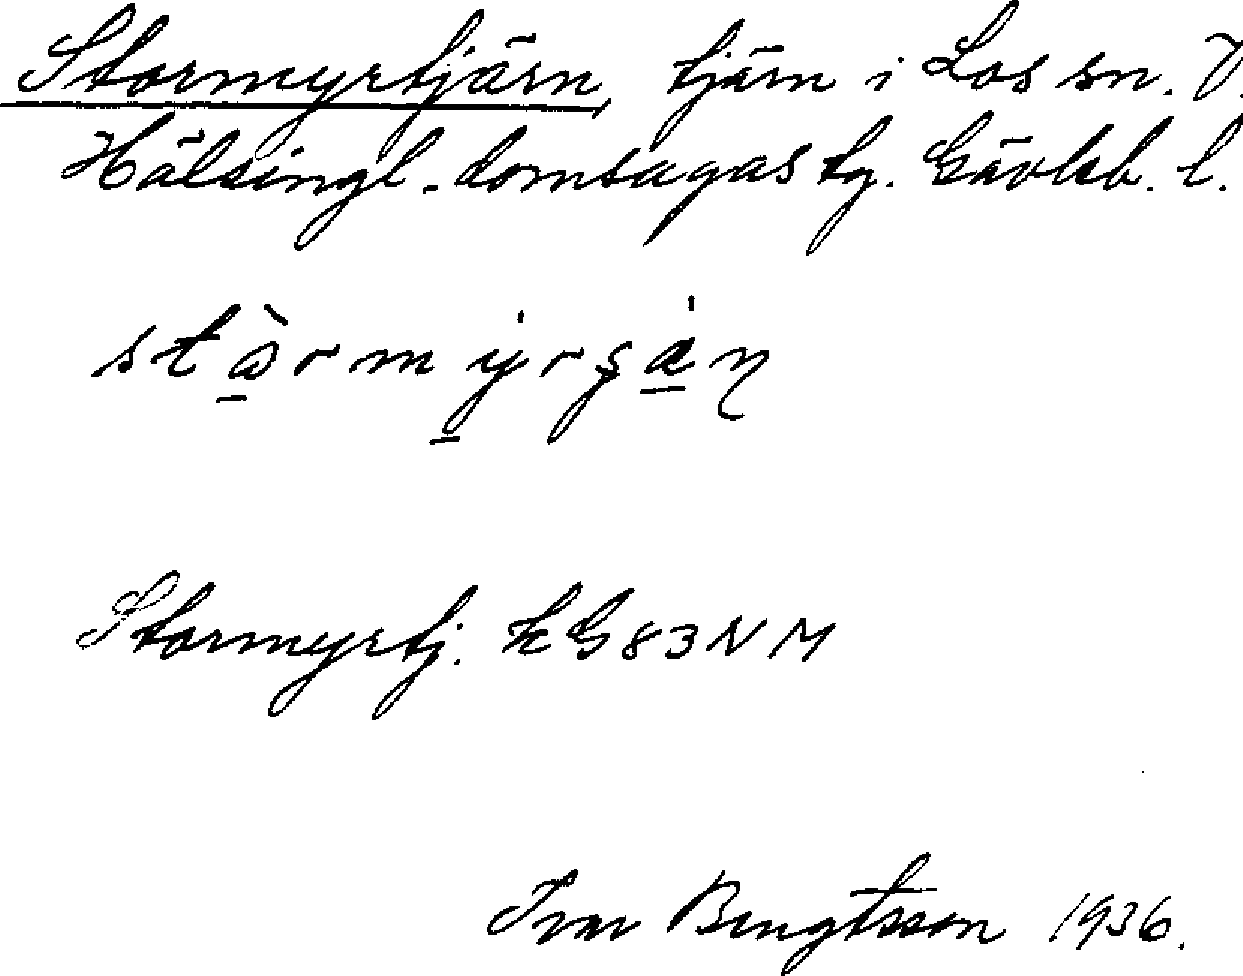 Stormyrtjärn, tjärn i Los sn. V.
Hälsingl. domsagas tg. Gävleb. l.
Stormyrtj. kG83NM
Ivar Bengtsson 1936.